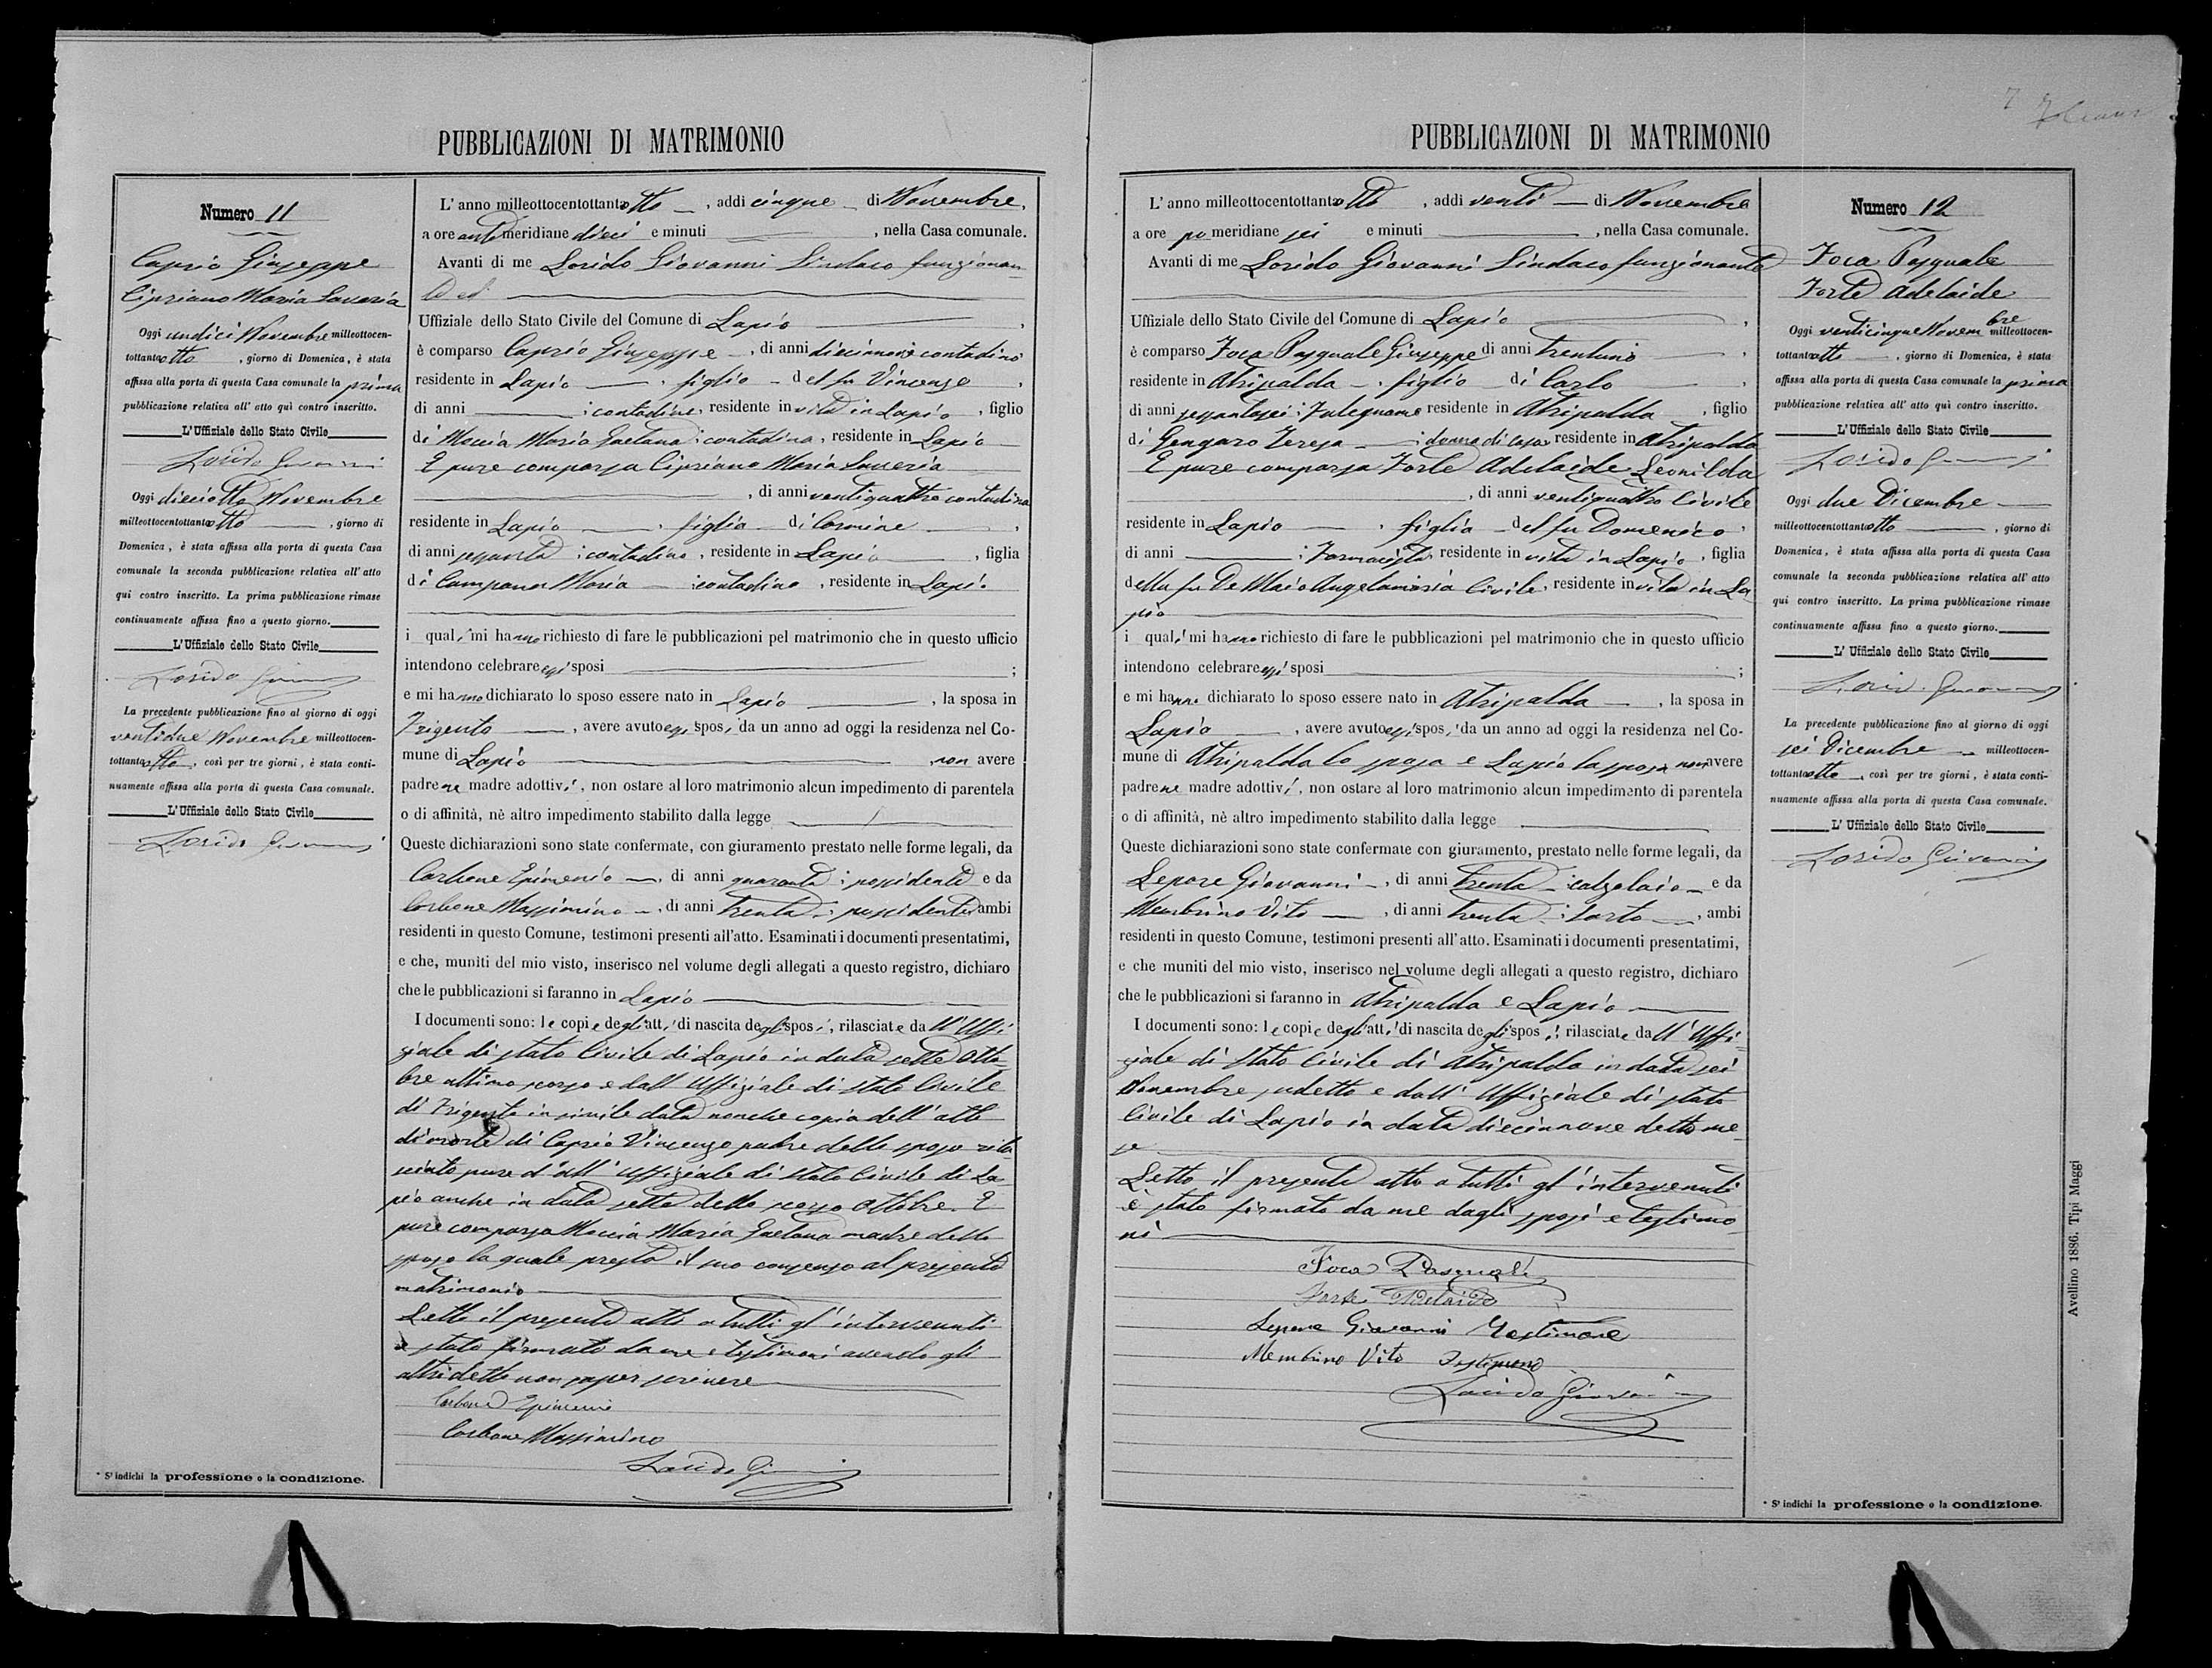 PUBBLICAZIONI DI MATRIMONIO
Numero 11
Caprio Giuseppe
Cipriano Maria Saveria
Oggi undici Novembre milleottocen-
tottantaotto, giorno di Domenica, è stata
affissa alla porta di questa Casa comunale la prima
pubblicazione relativa all' atto quì contro inscritto.
L'Uffiziale dello Stato Civile
Oggi dieciotto Novembre
milleottocentottantaotto, giorno di
Domenica, è stata affissa alla porta di questa Casa
comunale la seconda pubblicazione relativa all' atto
qui contro inscritto. La prima pubblicazione rimase
continuamente affissa fino a questo giorno.
L'Uffiziale dello Stato Civile
La precedente pubblicazione fino al giorno di oggi
ventidue Novembre milleottocen-
tottantaotto, così per tre giorni, è stata conti-
nuamente affissa alla porta di questa Casa comunale.
L'Uffiziale dello Stato Civile
* Si indichi la professione o la condizione.
L' anno milleottocentottantaotto, addì cinque di Novembre,
a ore antimeridiane dieci e minuti , nella Casa comunale.
Avanti di me Losido Giovanni Sindaco funzionan
te ed
Uffiziale dello Stato Civile del Comune di Lapio ,
è comparso Caprio Giuseppe, di anni diecinove contadino
residente in Lapio, figlio del fu Vincenzo,
di anni ; contadino, residente in vita in Lapio, figlio
di Moccia Maria Gaetana; contadina, residente in Lapio
E pure comparsa Cipriano Maria Saveria
, di anni ventiquattro contadina
residente in Lapio, figlia di Carmine,
di anni sessanta; contadino, residente in Lapio, figlia
di Campana Maria; contadina, residente in Lapio
i quali mi hanno richiesto di fare le pubblicazioni pel matrimonio che in questo ufficio
intendono celebrare essi sposi ;
e mi hanno dichiarato lo sposo essere nato in Lapio, la sposa in
Frigento, avere avuto essi sposi da un anno ad oggi la residenza nel Co-
mune di Lapio non avere
padre ne madre adottivi, non ostare al loro matrimonio alcun impedimento di parentela
o di affinità, nè altro impedimento stabilito dalla legge
Queste dichiarazioni sono state confermate, con giuramento prestato nelle forme legali, da
Carbone Epimenio, di anni quaranta; possidente e da
Carbone Massimino, di anni trenta; possidente, ambi
residenti in questo Comune, testimoni presenti all'atto. Esaminati i documenti presentatimi,
e che, muniti del mio visto, inserisco nel volume degli allegati a questo registro, dichiaro
che le pubblicazioni si faranno in Lapio
I documenti sono: le copie degli atti di nascita degli sposi, rilasciate dall'Uffi
ziale di stato Civile di Lapio in data sette Otto-
bre ultimo scorso e dall'Uffiziale di stato Civile
di Frigento in simile data nonche copia dell'atto
di morte di Caprio Vincenzo padre dello sposo rila
sciato pure d'all'uffiziale di stato Civile di La
pio anche in data sette dello scorso Ottobre. E
pure comparsa Moccia Maria Gaetana madre dello
sposo la quale presta il suo consenso al presente
matrimonio
Letto il presente atto a tutti gl'intervenuti
è stato firmato da me e testimoni avendo gli
altri detto non saper scrivere
Carbone Epimenio
Carbone Massimino
PUBBLICAZIONI DI MATRIMONIO
L' anno milleottocentottantaotto, addì venti di Novembre
a ore pomeridiane sei e minuti , nella Casa comunale.
Avanti di me Losido Giovanni Sindaco funzionante
Uffiziale dello Stato Civile del Comune di Lapio ,
è comparso Foca Pasquale Giuseppe di anni trentuno ,
residente in Atripalda, figlio di Carlo ,
di anni sessantasei; Falegname residente in Atripalda, figlio
di Gengaro Teresa; donna di casa residente in Atripalda
E pure comparsa Forte Adelaide Leonilda
, di anni ventiquattro Civile
residente in Lapio, figlia del fu Domenico,
di anni ; Farmacista residente in vita in Lapio, figlia
della fu De Maio Angelamaria Civile, residente in vita in La
pio
i quali mi hanno richiesto di fare le pubblicazioni pel matrimonio che in questo ufficio
intendono celebrare essi sposi ;
e mi hanno dichiarato lo sposo essere nato in Atripalda, la sposa in
Lapio, avere avuto essi sposi da un anno ad oggi la residenza nel Co-
mune di Atripalda lo sposo e Lapio la sposa non avere
padre ne madre adottivi, non ostare al loro matrimonio alcun impedimento di parentela
o di affinità, nè altro impedimento stabilito dalla legge
Queste dichiarazioni sono state confermate con giuramento, prestato nelle forme legali, da
Lepore Giovanni, di anni trenta calzolaio e da
Membrino Vito, di anni trenta; sarto, ambi
residenti in questo Comune, testimoni presenti all'atto. Esaminati i documenti presentatimi,
e che muniti del mio visto, inserisco nel volume degli allegati a questo registro, dichiaro
che le pubblicazioni si faranno in Atripalda e Lapio
I documenti sono: le copie degli atti di nascita degli sposi rilasciate dall'Uffi-
ziale di Stato Civile di Atripalda in data sei
Novembre sudetto e dall'Uffiziale di stato
Civile di Lapio in data diecinnove detto me-
se
Letto il presente atto a tutti gl'intervenuti
è stato firmato da me dagli sposi e testimo
ni
Foca Pasquale
Forte Adelaide
Lepore Giovanni Testimone
Membrino Vito Testimone
Losido Giovanni
Numero 12
Foca Pasquale
Forte Adelaide
Oggi venticinque Novembre milleottocen-
tottantaotto, giorno di Domenica, è stata
affissa alla porta di questa Casa comunale la prima
pubblicazione relativa all' atto quì contro inscritto.
L'Uffiziale dello Stato Civile
Oggi due Dicembre
milleottocentottantaotto, giorno di
Domenica, è stata affissa alla porta di questa Casa
comunale la seconda pubblicazione relativa all' atto
qui contro inscritto. La prima pubblicazione rimase
continuamente affissa fino a questo giorno.
L' Uffiziale dello Stato Civile
La precedente pubblicazione fino al giorno di oggi
sei Dicembre milleottocen-
tottantaotto, così per tre giorni, è stata conti-
nuamente affissa alla porta di questa Casa comunale.
L' Uffiziale dello Stato Civile
Losido Giovanni
* Si indichi la professione o la condizione.
Avellino 1886. Tipi Maggi